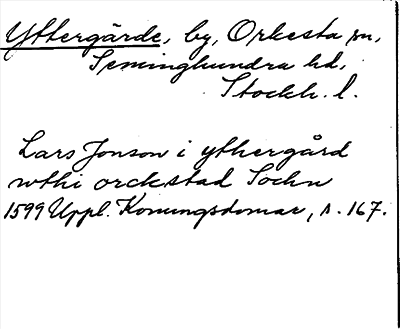 Yttergärde, by, Orkesta sn,
Seminghundra hd,
Stockh. l.
Lars Jonson i ythergård
wthi orckstad Sochn
1599 Uppl. Konungsdomar, s. 167.